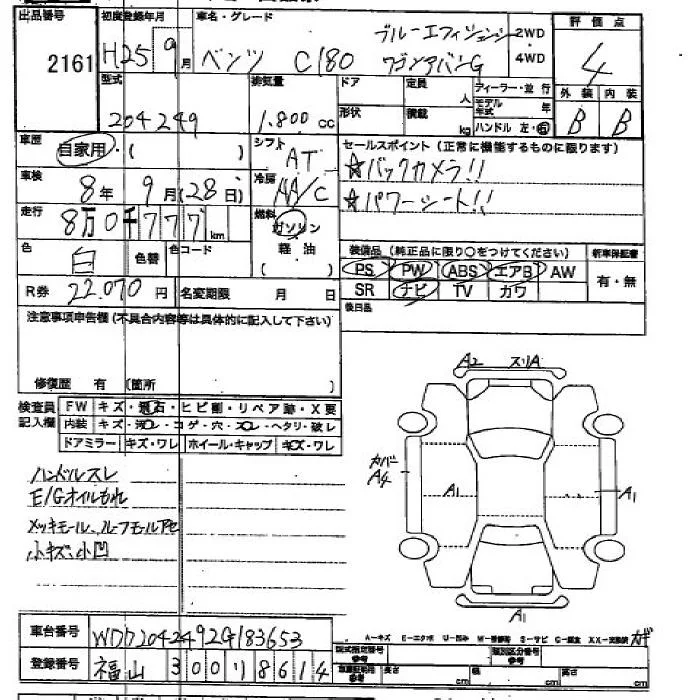 出品番号 初度登録年月 車名・グレード 評価点
2161 H25年 9月 ベンツ C180 ブルーエフィシェンシー ワゴンアバンG 2WD・4WD 4
型式 排気量 ドア 定員 人 ディーラー・並行 外装 内装
204249 1.800cc 形状 積載 kg モデル年式 年 ハンドル 左・右 B B
車歴 自家用・( ) シフト AT セールスポイント(正常に機能するものに限ります)
車検 8年 9月(28日) 冷房 AA/C ☆バックカメラ!!
☆パワーシート!!
走行 8万0千777km 燃料 ガソリン 軽油 ( )
色 白 色替 色コード 装備品(純正品に限り○をつけてください) 新車保証書
PS PW ABS エアB AW 有・無
R券 22.070円 名変期限 月 日 SR ナビ TV カワ
注意事項申告欄(不具合内容等は具体的に記入して下さい) 後日品
修復歴 有 (箇所 )
A2 スリA
検査員記入欄 FW キズ・飛石・ヒビ割・リペア跡・X要
内装 キズ・汚レ・コゲ・穴・スレ・ヘタリ・破レ
ドアミラー キズ・ワレ ホイール・キャップ キズ・ワレ
カバー A4 A1 A1
ハンドルスレ
E/Gオイルもれ
メッキモール、ルーフモールアセ
小キズ、小凹
A1
車台番号 WDD2042492G183653
A-キズ E-エクボ U-凹み S-サビ C-腐食
登録番号 福山 300 り 8614 型式指定番号 参考 類別区分番号 参考
長さ cm 幅 cm 高さ cm